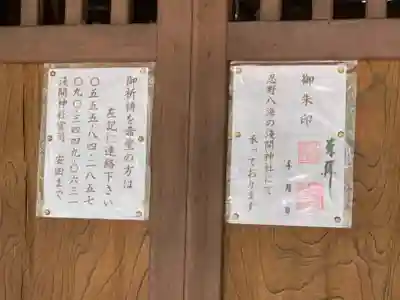 御朱印
奉拝
忍野八海の浅間神社にて
年 月 日
承っております
御祈祷を希望の方は
左記に連絡下さい
〇五五五-八四-二八五七
〇九〇-三四四九-〇六三一
浅間神社宮司 安田まで